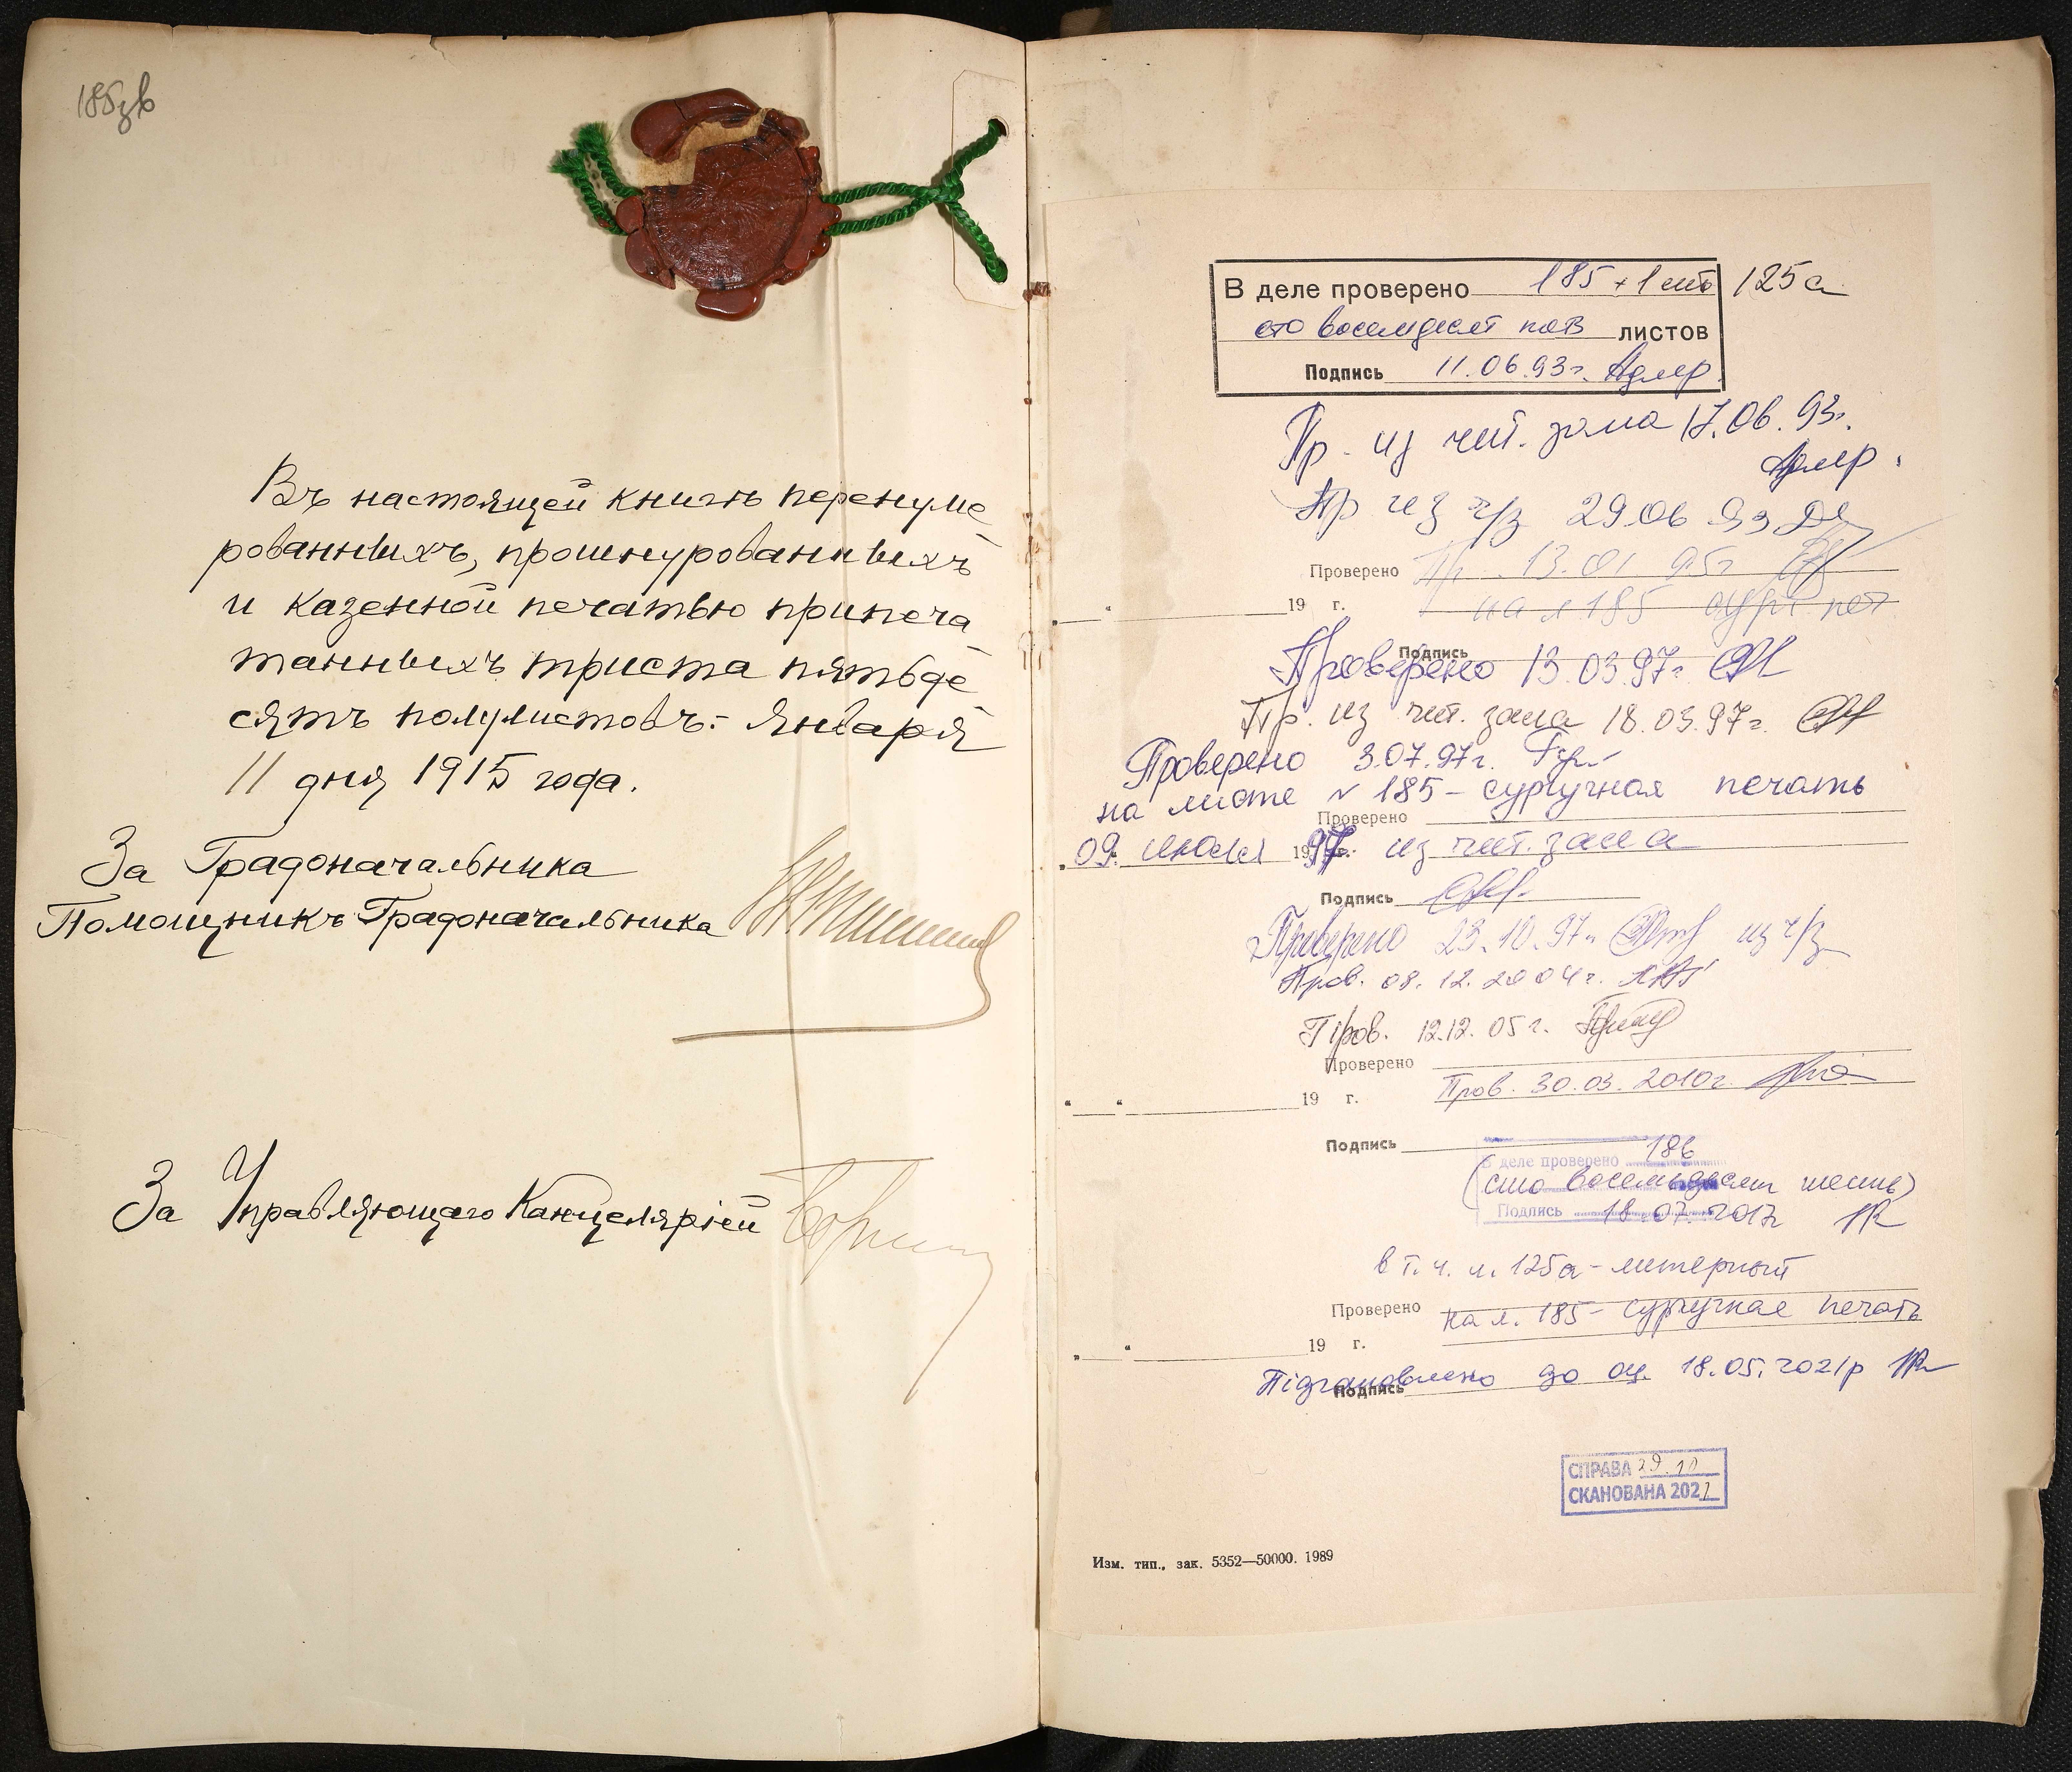 185зв
Въ настоящей книгѣ перенуме
рованныхъ, прошнурованныхъ
и казенной печатью припеча
танныхъ триста пятьде
сятъ полулистовъ.- Января
11 дня 1915 года.
За Градоначальника
Помощникъ Градоначальника
За Управляющаго Канцеляріей
В деле проверено 185 + 1 лит 125а
сто восемдесят пять листов
Подпись 11.06.93г.
Пр. из чит. зала 17.06.93г.
Пр из ч/з 29 06 93
Проверено Пр. 13.01 95г
19 г.
на л 185 сург печ
Подпись
Проверено 13.03.97г
Пр. из чит. зала 18.03.97г.
Проверено 3.07.97г.
на листе № 185 - сургучная печать
Проверено
09 июля 1997г. из чит. зала
Подпись
Проверено 23.10.97г. из ч/з
Пров. 08.12.2004г.
Пров. 12.12.05г.
Проверено
Пров. 30.03.2010г.
19 г.
Подпись
В деле проверено 186
(сто восемьдесят шесть)
Подпись 18.07.2017г
в т.ч. л. 125а - литерный
Проверено
на л. 185 - сургучная печать
19 г.
Підготовлено до оц. 18.05.2021р
Подпись
СПРАВА 29.10
СКАНОВАНА 2021
Изм. тип., зак. 5352—50000. 1989